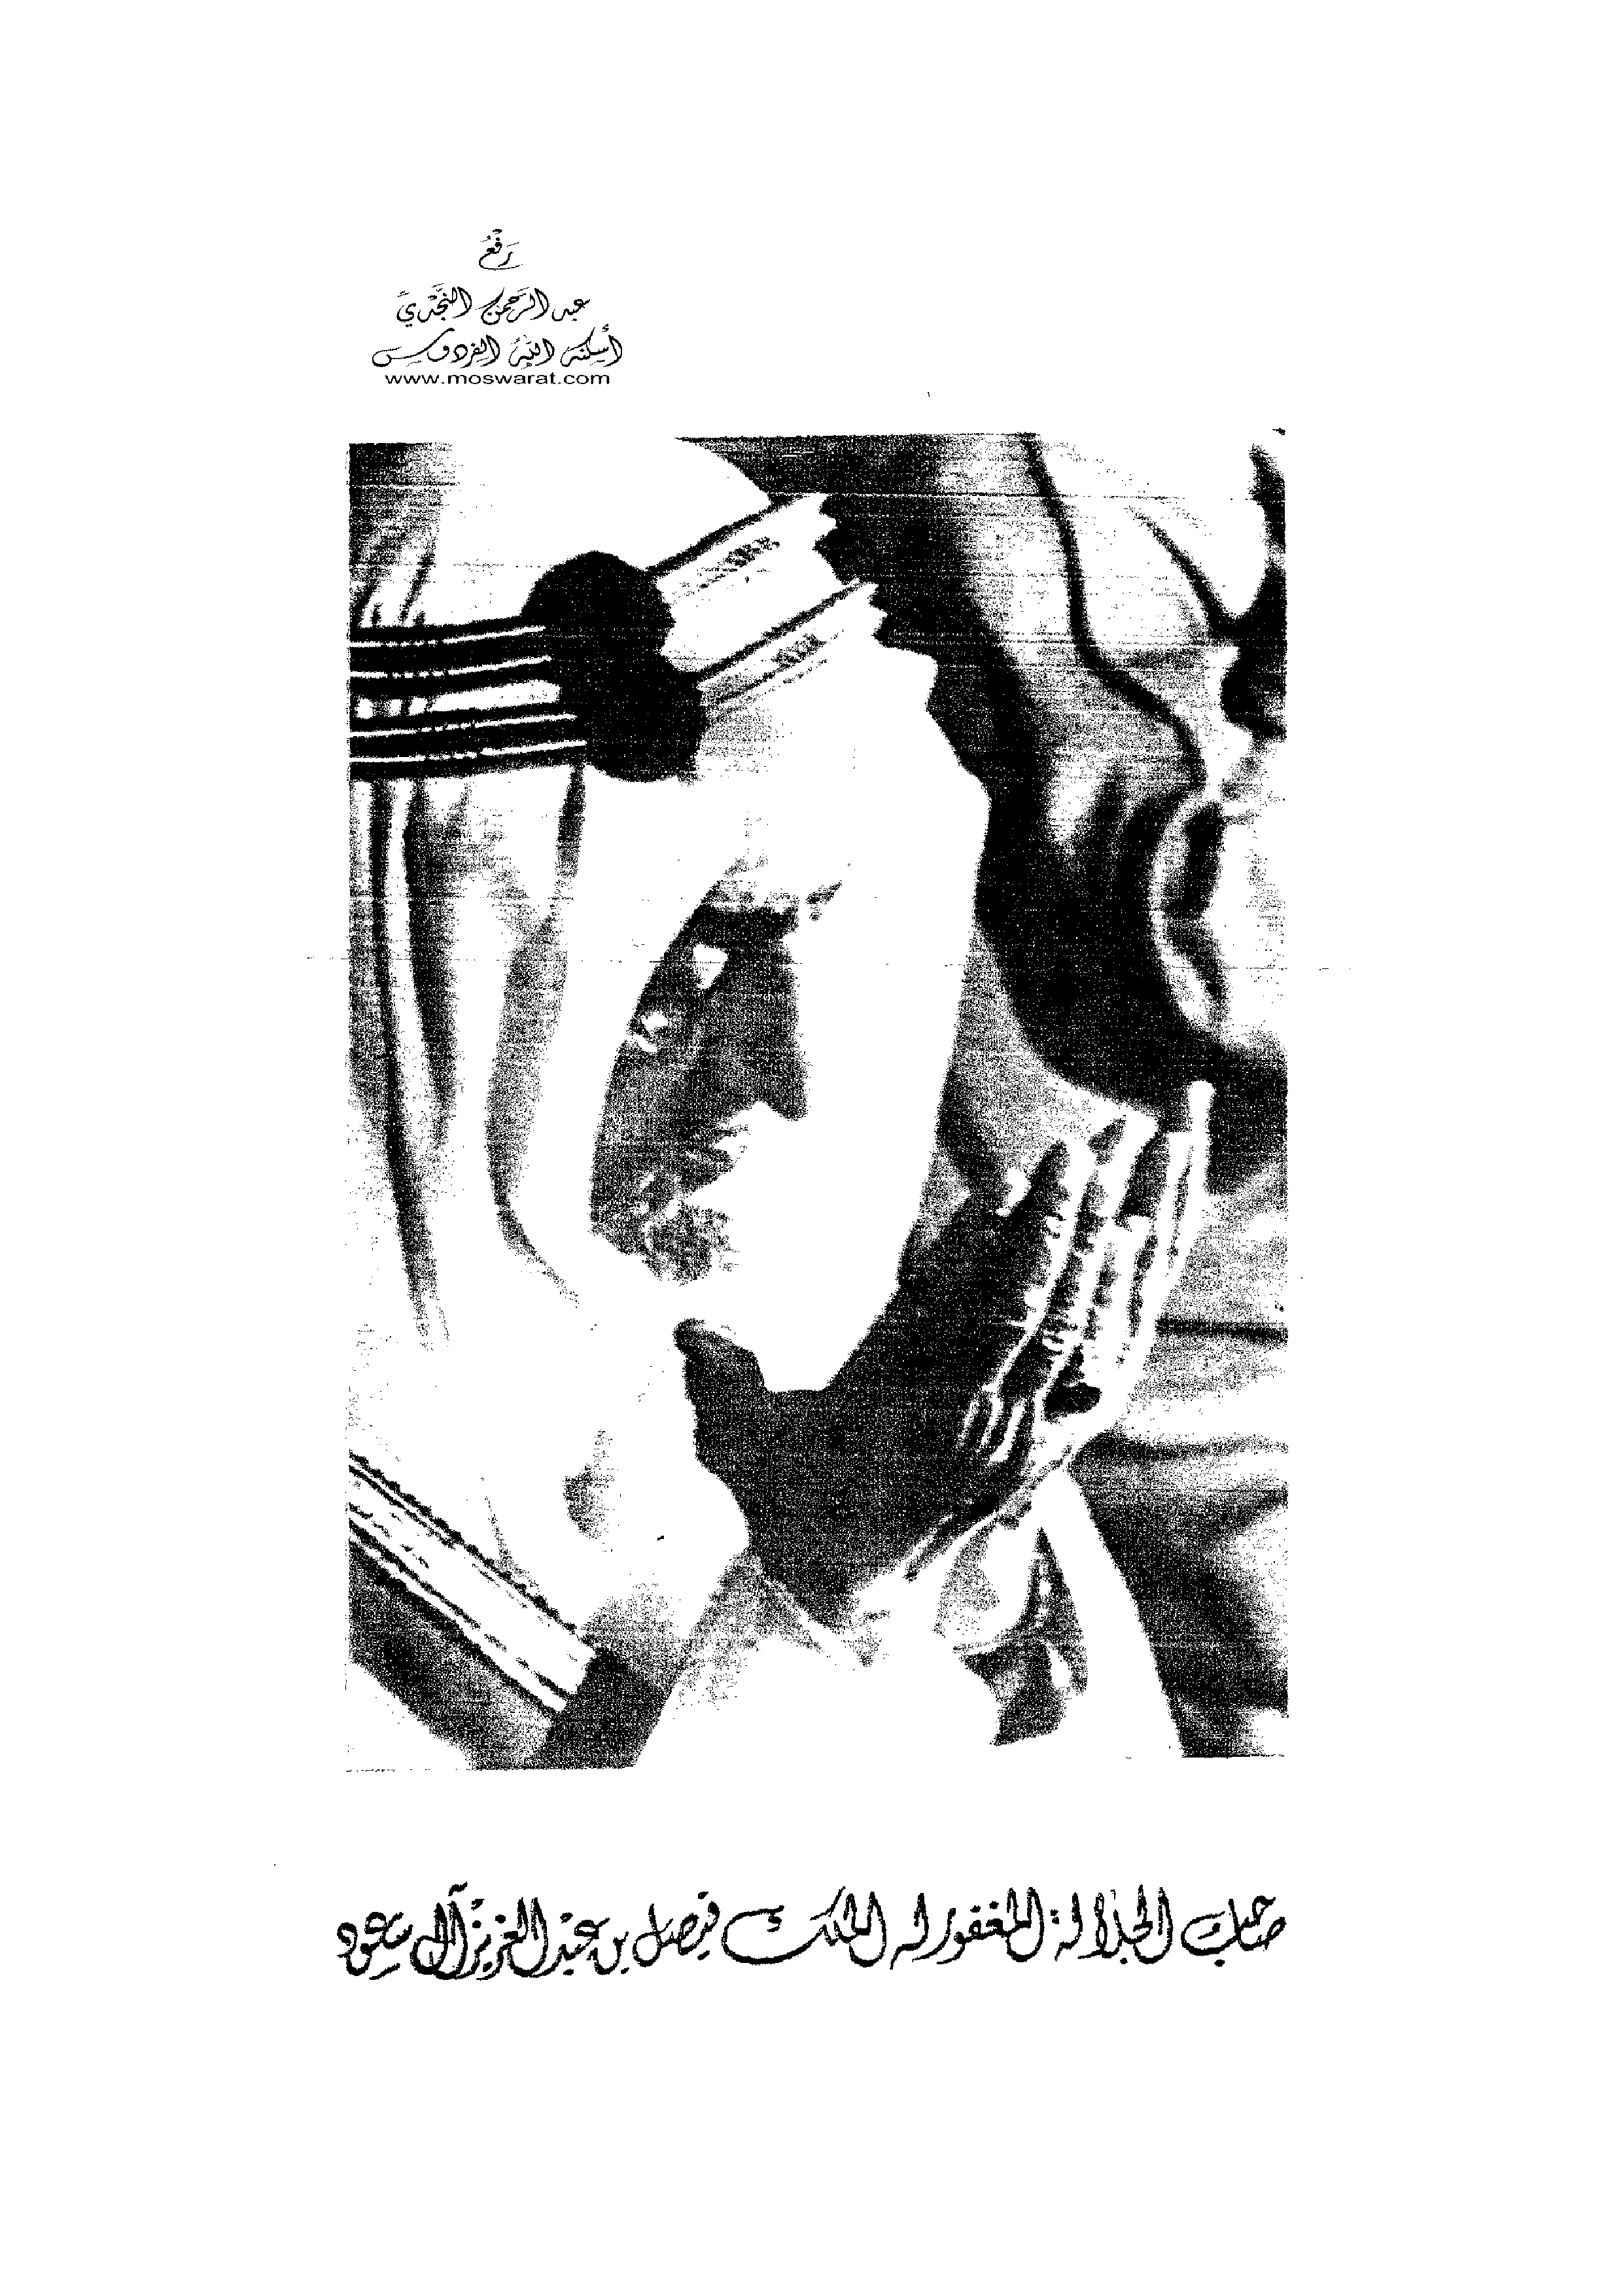 رَفْعُ
عبد الرَّحمن النَّجْدِيِّ
أسكنه اللهُ الفردوس
www.moswarat.com
صاحب الجلالة المغفور له الملك فيصل بن عبد العزيز آل سعود